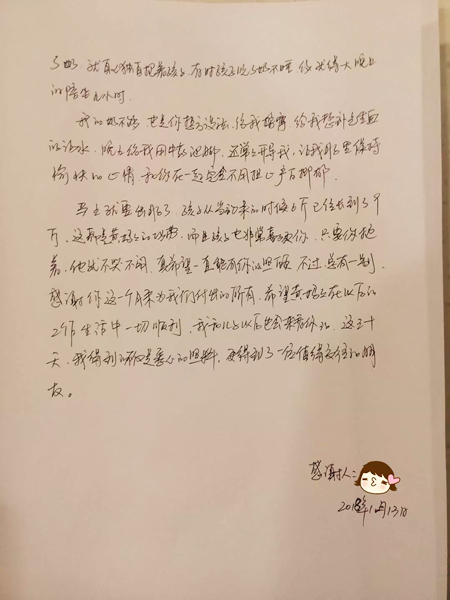 了奶，就直接抱着孩子，有时孩子吃了奶不睡，你就得大晚上
的陪着几小时。
我的奶不够，也是你想方设法，给我按摩，给我整补气血
的汤水，晚上给我用中药泡脚，还常常开导我，让我每天保持
愉快的心情，和你在一起完全不用担心产后抑郁。
马上就要出月了，孩子从当初来的时候6斤已经长到了9
斤，这都是黄妈妈的功劳，而且孩子也非常喜欢你，只要你抱
着，他就不哭不闹，真希望一直能有你的照顾，不过，总有一别，
感谢你这一个月来为我们付出的所有，希望黄妈妈在以后的
工作生活中一切顺利，我和儿子以后也会来看你的，这三十
天，我得到的不仅是悉心的照料，更得到了一位值得交往的朋
友。
感谢人：
2018年1月13日